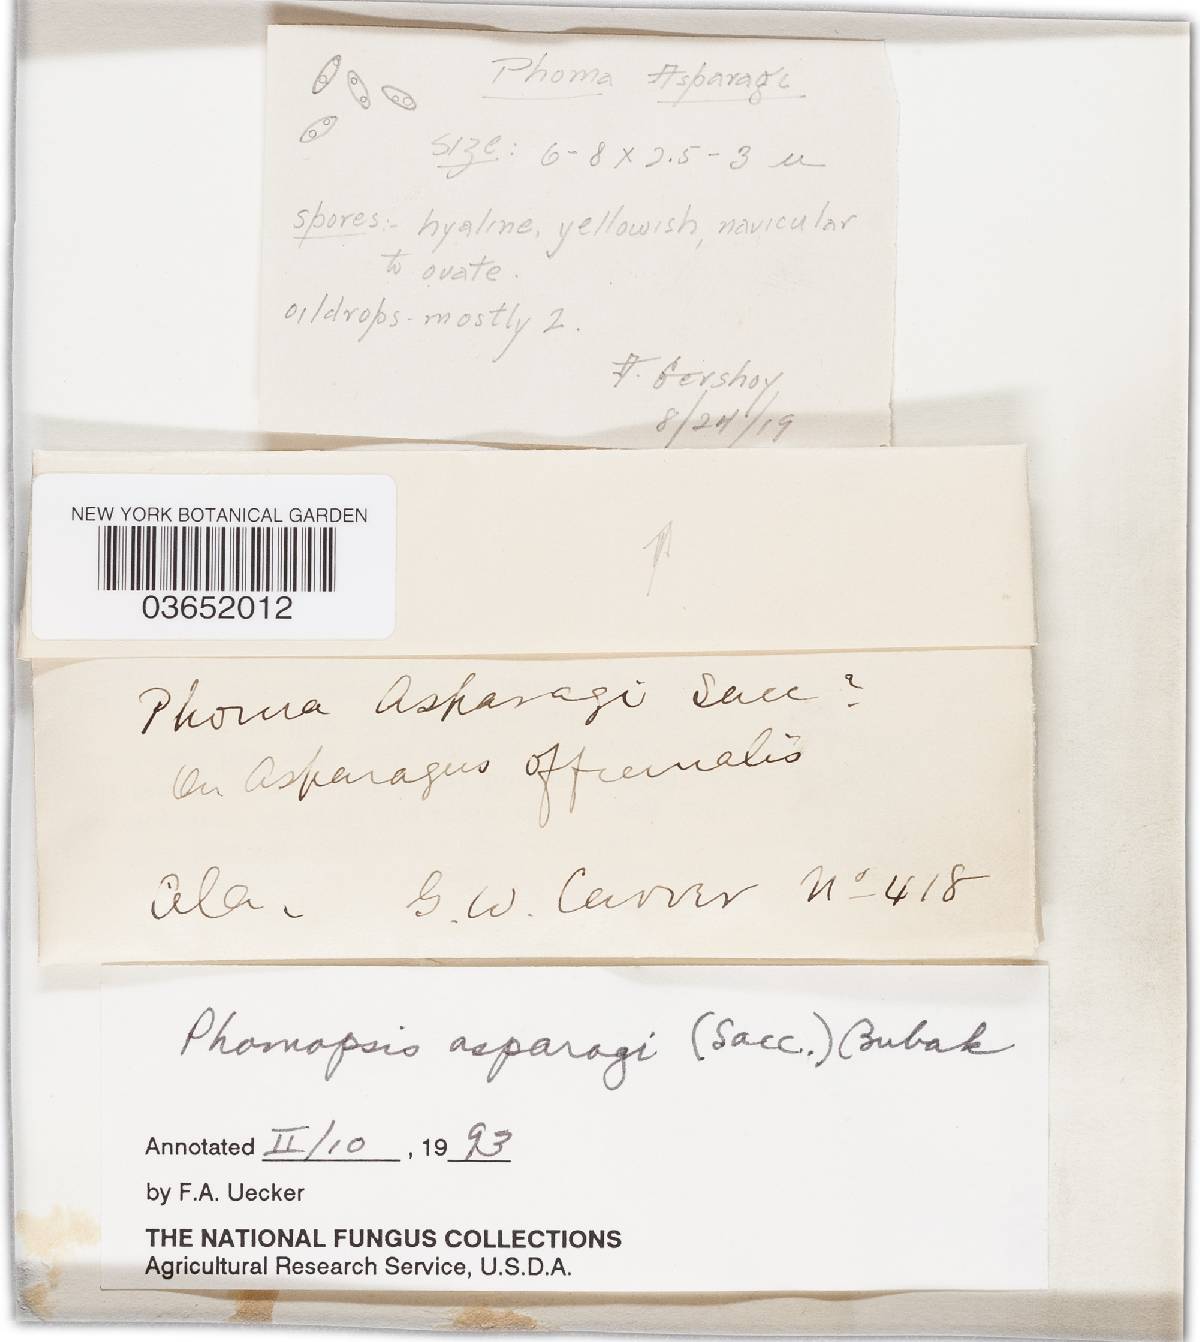 Phoma Asparagi
Size: 6-8 x 2.5-3 u
spores:- hyaline, yellowish, navicular
to ovate.
oildrops-mostly 2.
A. Gershoy
8/24/19
NEW YORK BOTANICAL GARDEN
03652012
Phoma Asparagi Sacc?
On Asparagus officinalis
Ala. G. W. Carver No 418
Phomopsis asparagi (Sacc.) Bubak
Annotated II/10, 1993
by F.A. Uecker
THE NATIONAL FUNGUS COLLECTIONS
Agricultural Research Service, U.S.D.A.